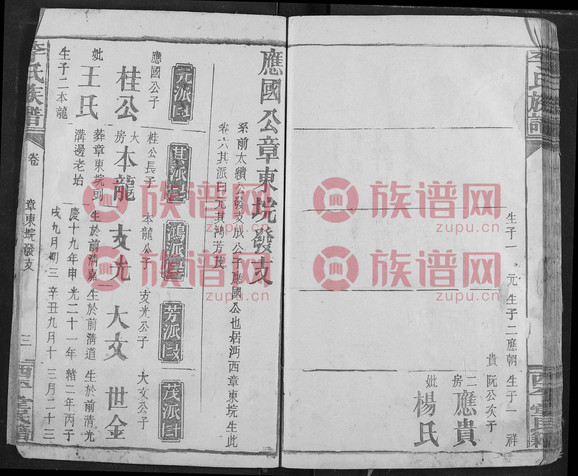 生子一
元 生子二應朝
貴
生于一 祥
阮公次子
二房 應貴
妣 楊氏
應國公章東垸發支
系前太
公發支成公子應國公也居沔西章東垸生此
卷六其派曰元其鴻芳茂
元派
其派
鴻派
芳派
茂派
應國公子
桂公長子
本龍公子
友光公子
大文公子
桂公
大房 本龍
友光
大文
世金
妣 王氏
葬章東垸
生於前清
生於前清道
生於前清光
生子二本龍
溝邊老
慶十九年甲
光二十一年
緒二年丙子
戌九月初三
辛丑九月十
三月二十三
李氏族譜
卷
章東垸發支
三
族谱网
zupu.cn
族谱网
zupu.cn
族谱网
zupu.cn
族谱网
zupu.cn
族谱网
zupu.cn
族谱网
zupu.cn